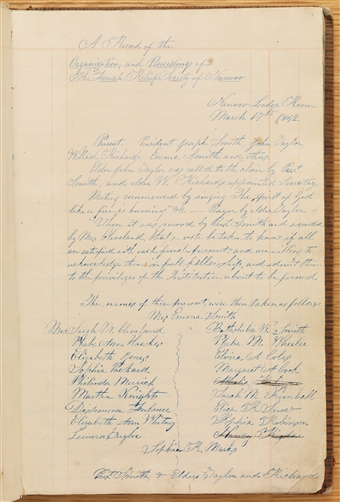 A Record of the
Organization, and Proceedings of
The Female Relief Society of Nauvoo
Nauvoo Lodge Room
March 17th 1842.
Present. President Joseph Smith, John Taylor,
Willard Richards, Emma Smith and others.
Elder John Taylor was called to the chair by Prest
Smith, and elder W. Richards appointed Secretary.
Meeting commenced by singing "The Spirit of God
like a fire is burning" &c. — Prayer by elder Taylor.
When it was moved by Prest Smith and seconded
by Mrs Cleveland, that a vote be taken to know if all
are satisfied with each female present and are willing to
acknowledge them in full fellowship, and admit them
to the privileges of the Institution about to be formed.
The names of those present were then taken as follows
Mrs Emma Smith
Mrs Sarah M. Cleveland
Bathsheba W. Smith
Phebe Ann Hawkes
Phebe M. Wheeler
Elizabeth Jones
Elvira A. Coles
Sophia Packard
Margaret A. Cook
Philinda Merrick
Martha Knights
Sarah M. Kimball
Desdemona Fulmer
Eliza R. Snow
Elizabeth Ann Whitney
Sophia Robinson
Leonora Taylor
Sophia R. Marks
Prest Smith & Elders Taylor and Richards